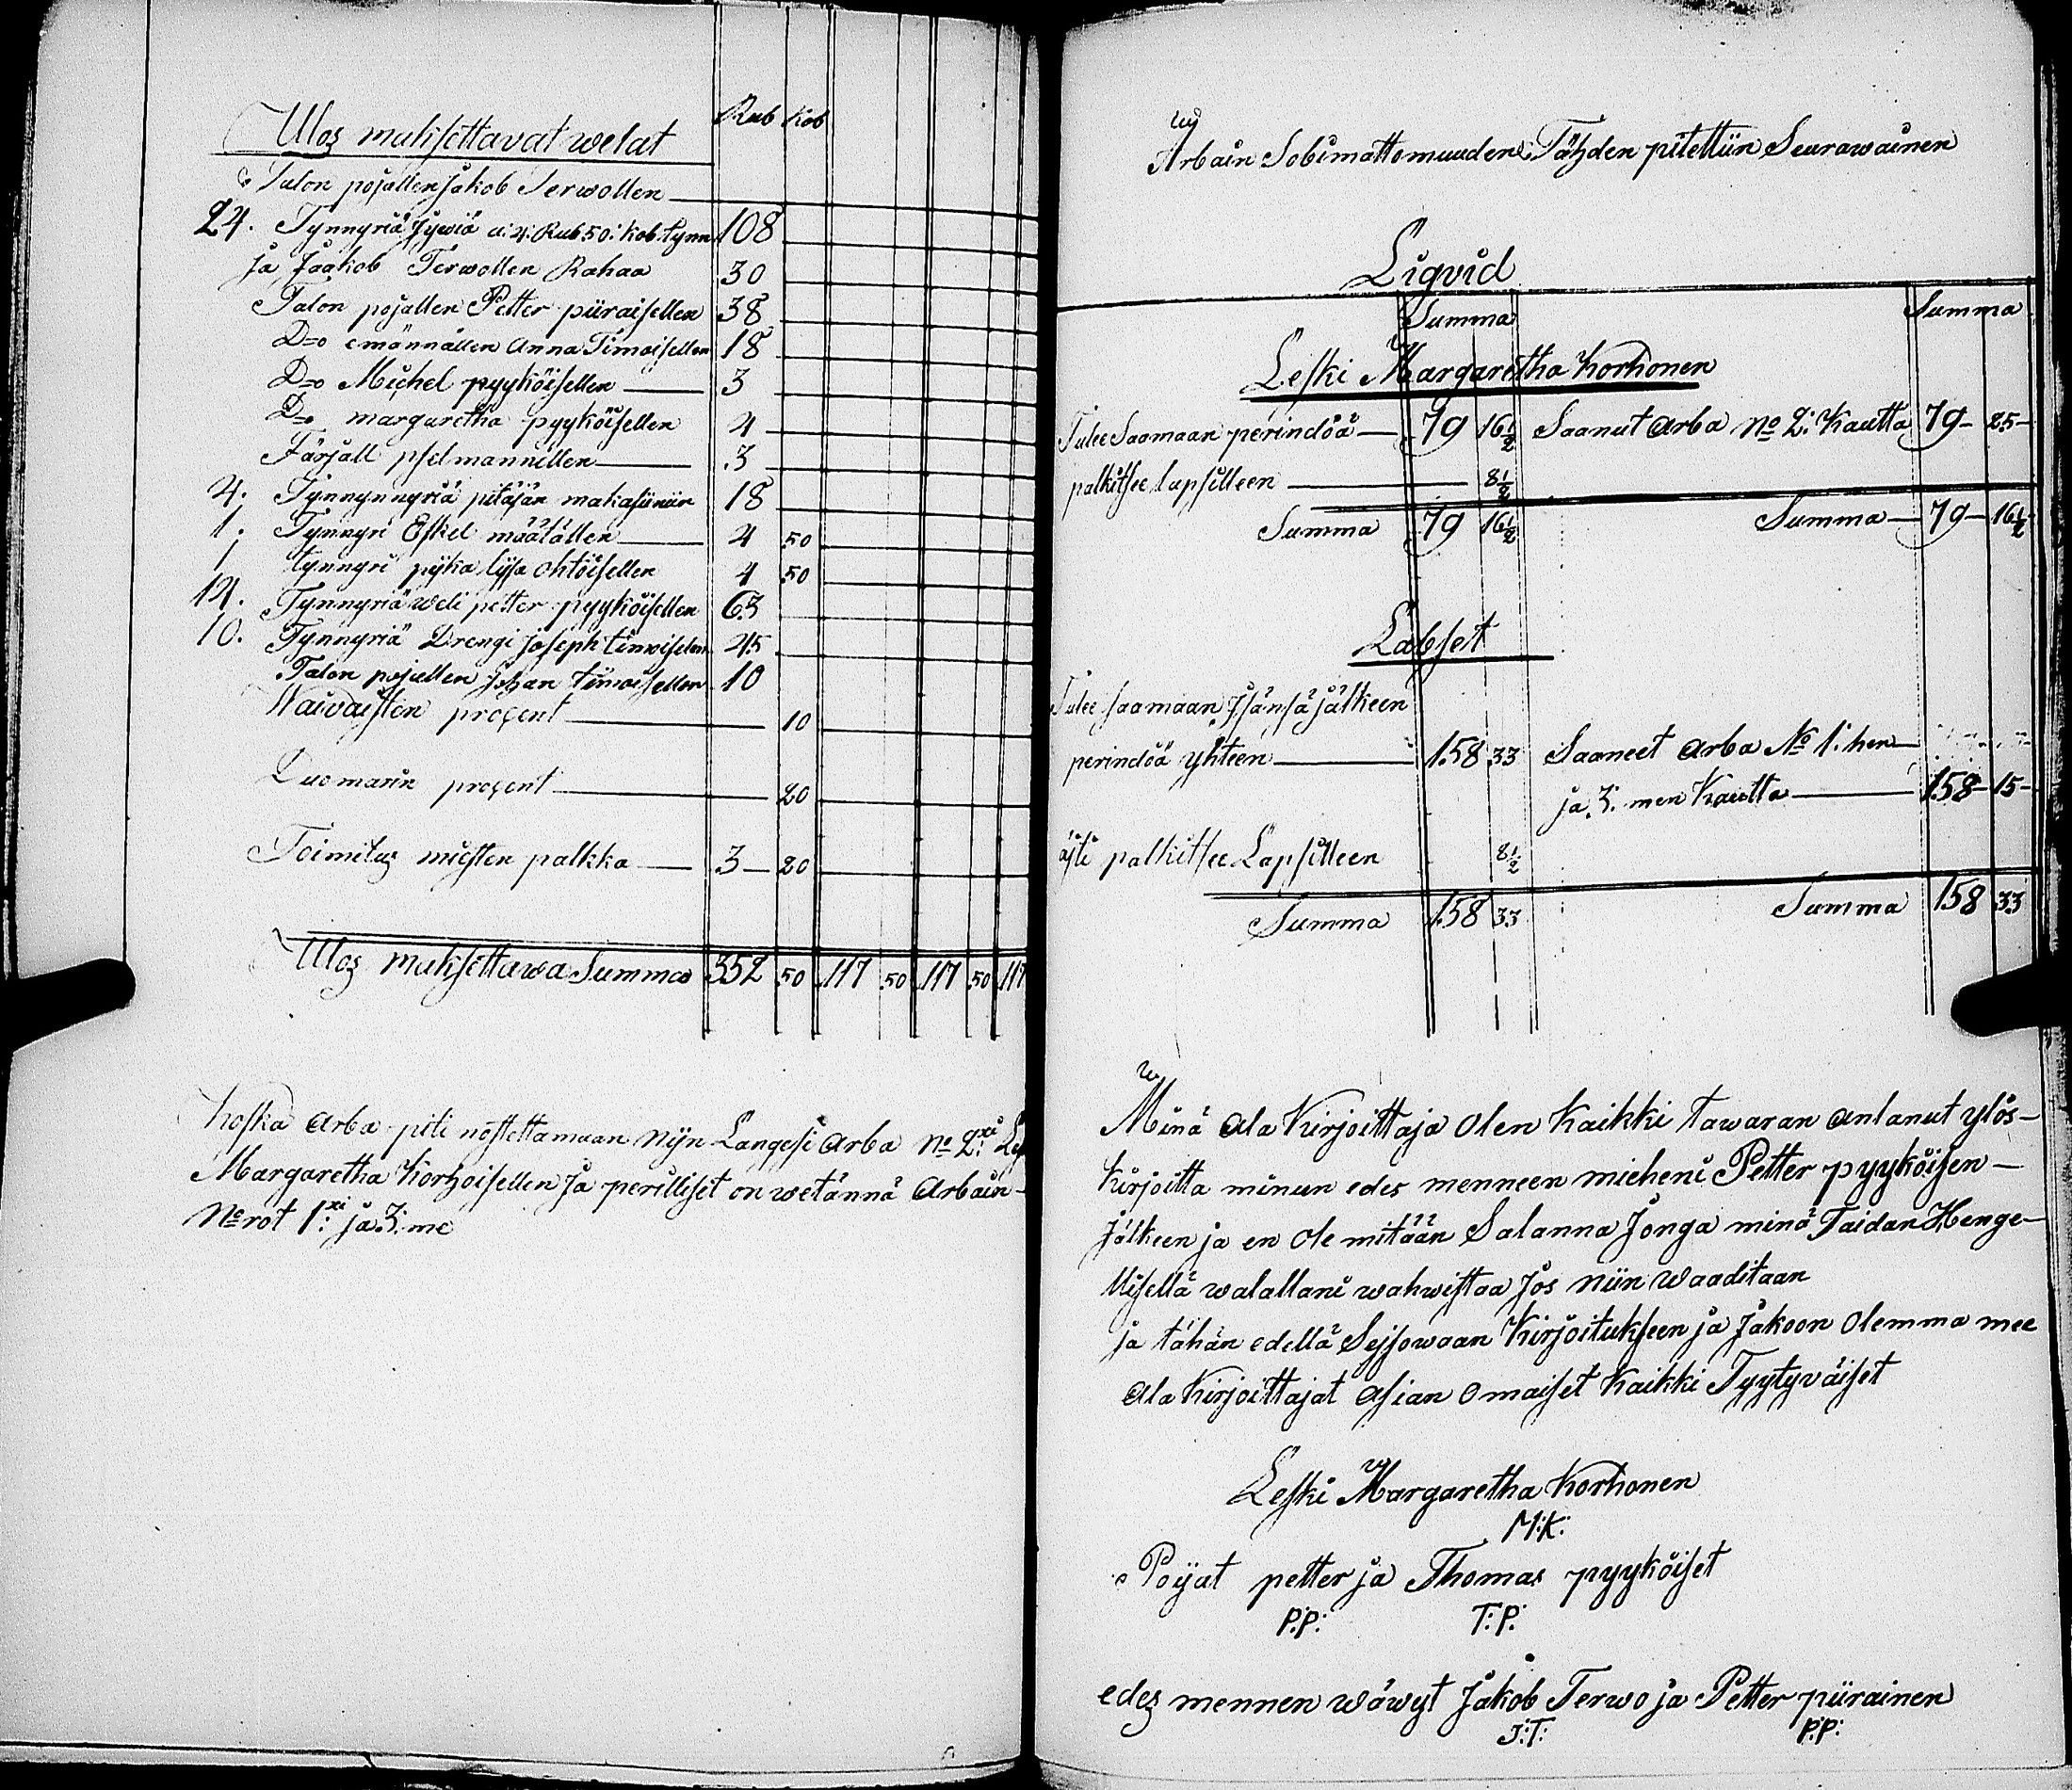 Rub Kob
Ulos maksettavat welat
Talon pojallen Jakob Terwollen
24. Tynnyriä Jywiä a: 4: Rub 50: Kob. tynn 108
ja Jaakob Terwollen Rahaa 30
Talon pojallen Petter piiraisellen 38
D=o emännällen Anna Timoisellen 18
D=o Michel pyyköisellen 3
D=o margaretha pyyköisellen 4
Färjäll 3
4. Tynnynnyriä pitäjän makasiiniin 18
1. Tynnyri Eskel määtällen 4 50
1 tynnyri pijka lijsa ohtöisellen 4 50
14. Tynnyriä weli petter pyyköisellen 63
10. Tynnyriä Drengi joseph timoiselen 45
Talon pojallen Johan timoisellen 10
Waivaisten proçent 10
Duomarin proçent 20
Toimitus miesten palkka 3 20
Ulos maksettawa Summa 352 50 117 50 117 50 117
koska Arba piti nostettamaan nijn Langesi Arba No 2:xi
Margaretha Korhoisellen ja perilliset on wetännä Arbain
No rot 1:xi ja 3:me
Arbain Sobimattomuuden Tähden pitettiin Seurawainen
Liqvid
Summa Summa
Leski Margaretha Korhonen
Tulee Saamaan perindöä 79 16½ Saanut Arba No 2: Kautta 79 25
palkitsee lapsilleen 8½
Summa 79 16½ Summa 79 16½
Labset
Tulee saamaan Jsänsä jälkeen
perindöä yhteen 158 33 Saaneet Arba No 1: hen
ja 3: men Kautta 158 15
äiti palkitsee Lapsilleen 8½
Summa 158 33 Summa 158 33
Minä Ala Kirjoittaja Olen Kaikki tawaran antanut ylös-
kirjoitta minun edes menneen mieheni Petter pyyköisen-
Jälkeen ja en Ole mitään Salanna Jonga minä Taidan Henge-
llisellä walallani wahwistaa Jos Niin Waaditaan
ja tähän edellä Sejsowaan Kirjoitukseen ja Jakoon Olemma mee
Ala Kirjoittajat Asian Omaiset Kaikki Tyytyväiset
Leski Margaretha Korhonen
M:K:
Poijat petter ja Thomas pyyköiset
P:P: T:P:
edes mennen wäwyt Jakob Terwo ja Petter piirainen
J:T: P:P: